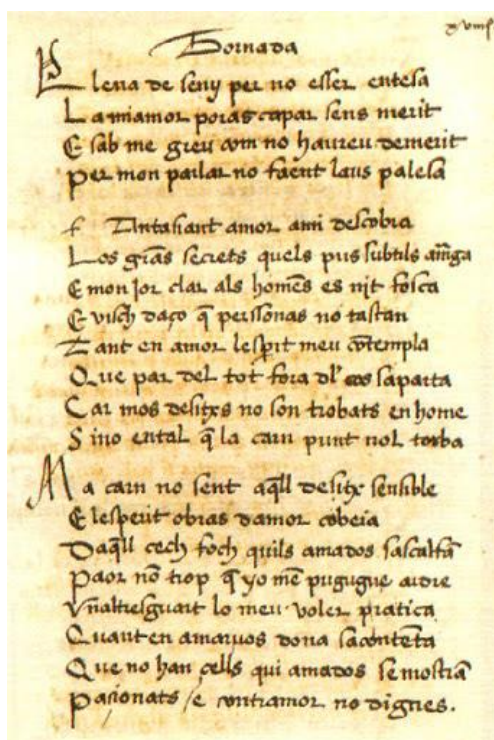 Tornada
Plena de seny per no esser entesa
La miamor poras capar sens merit
E sab me greu com no haureu demerit
Per mon parlar no faent laus palesa
f Antasiant amor ami descobra
Los grãs secrets quels pus subtils amãga
E mon jor clar als homẽs es nit fosca
E visch daço q̃ perssonas no tastan
Tant en amor lesp̃rit meu cõtempla
Que par del tot fora dl' cos saparta
Car mos desitxs no son trobats en home
Sino ental q̃ la carn punt nol torba
Ma carn no sent aq̃ll desitx sensible
E lesperit obras damor cobeia
Daq̃ll cech foch quils amados sascalfã
Paor nõ trop q̃ yo mẽ pugugue ardre
Vñaltresguart lo meu voler pratica
Quant en amaruos dona sacontẽta
Que no han cells qui amados se mostrã
Pacionats / e contramor no dignes.